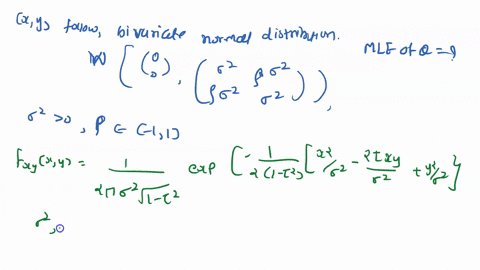 (x,y) follow, bivariate normal distribution.
N [ (0 0), (σ² ρσ² ρσ² σ²) ],
MLE of θ = ?
σ² > 0, ρ ∈ (-1,1)
f_xy(x,y) = 1 / 2πσ²√1-τ² exp [ -1/2(1-τ²) [ x²/σ² - 2τxy/σ² + y²/σ² ] }
σ²,